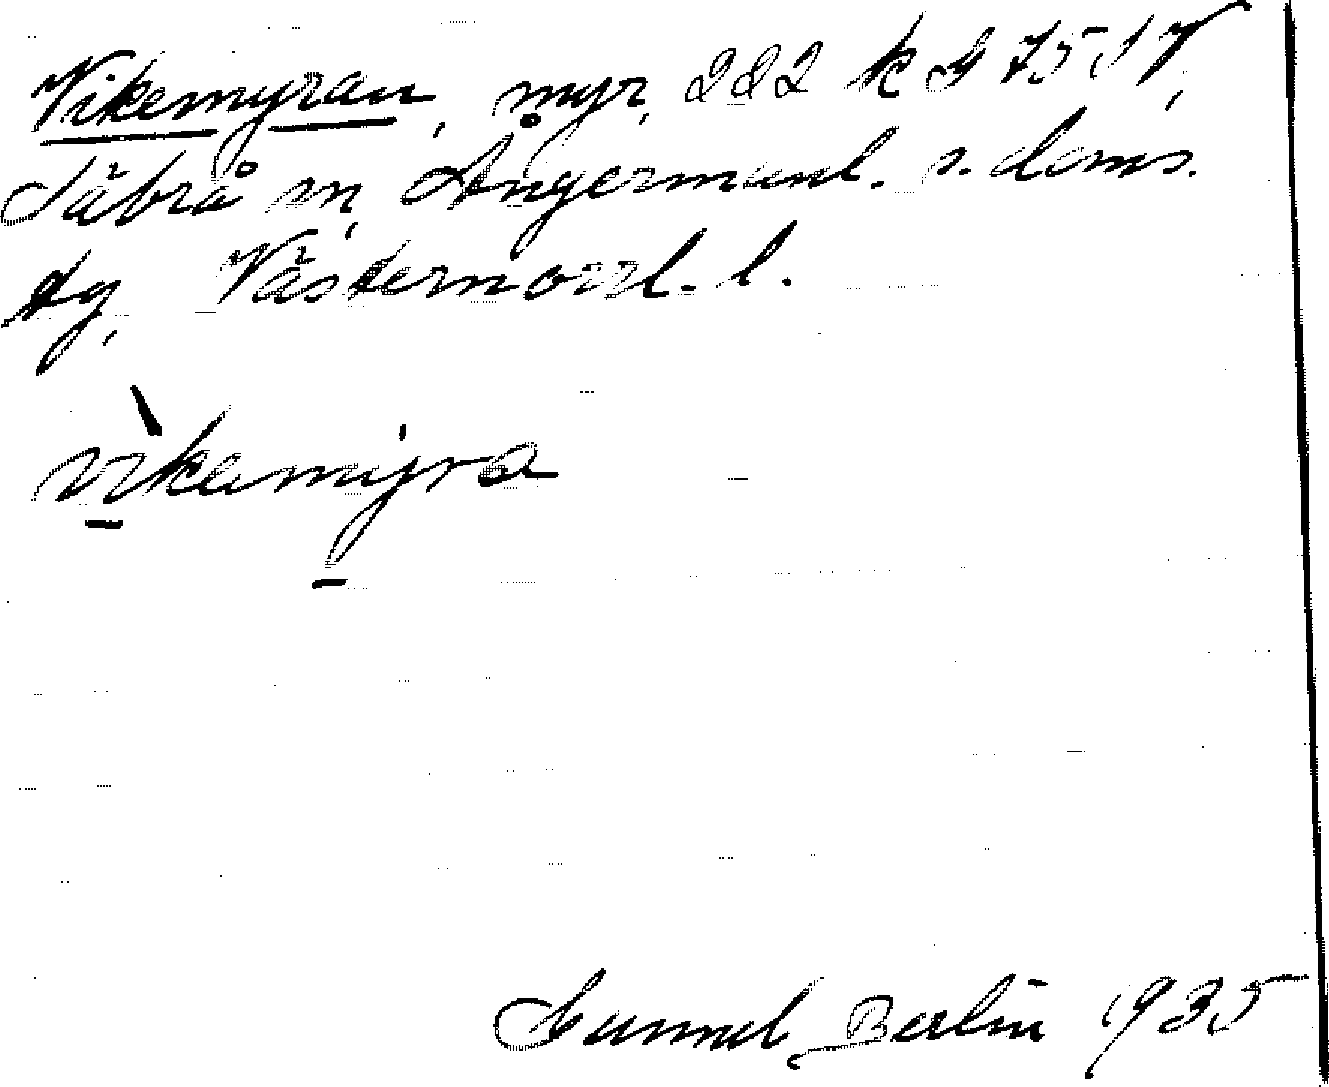 Vikemyran, myr, 222 k
Säbrå sn, Ångermanl. s. doms.
Västernorrl. l.
vikemyra
Gunnel Berlin 1935